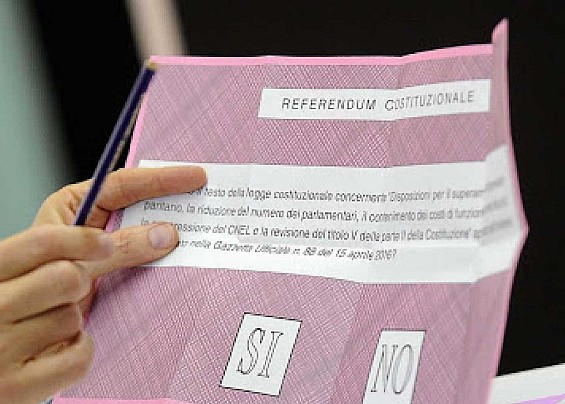 REFERENDUM COSTITUZIONALE
il testo della legge costituzionale concernente "Disposizioni per il superam
paritario, la riduzione del numero dei parlamentari, il contenimento dei costi di funzion
la soppressione del CNEL e la revisione del titolo V della parte II della Costituzione"
nella Gazzetta Ufficiale n. 88 del 15 aprile 2016?
SI
NO